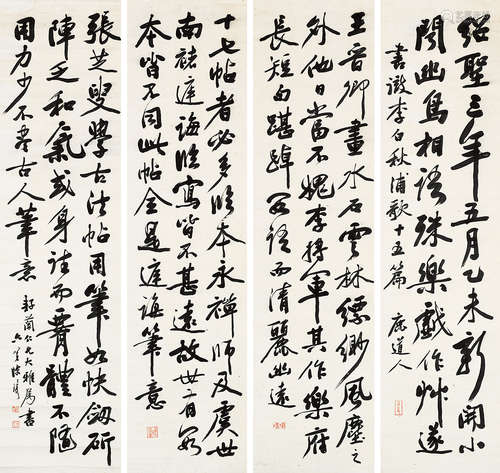 紹聖三年五月乙未新開小
閤幽鳥相語殊樂戲作艸遂
書徹李白秋浦歌十五篇
鹿道人
王晉卿畫水石雲林縹緲風塵之
外他日當不愧李將軍其作樂府
長短句踸踔口語而清麗幽遠
十七帖者必多臨本永禪師及虞世
南褚庭誨臨寫皆不甚遠故世有數
本皆不同此帖全是庭誨筆意
張芝叟學古法帖用筆如快劔斫
陣乏和氣或身詿而臂體不隨
用力少不盡古人筆意
仁兄大雅屬書